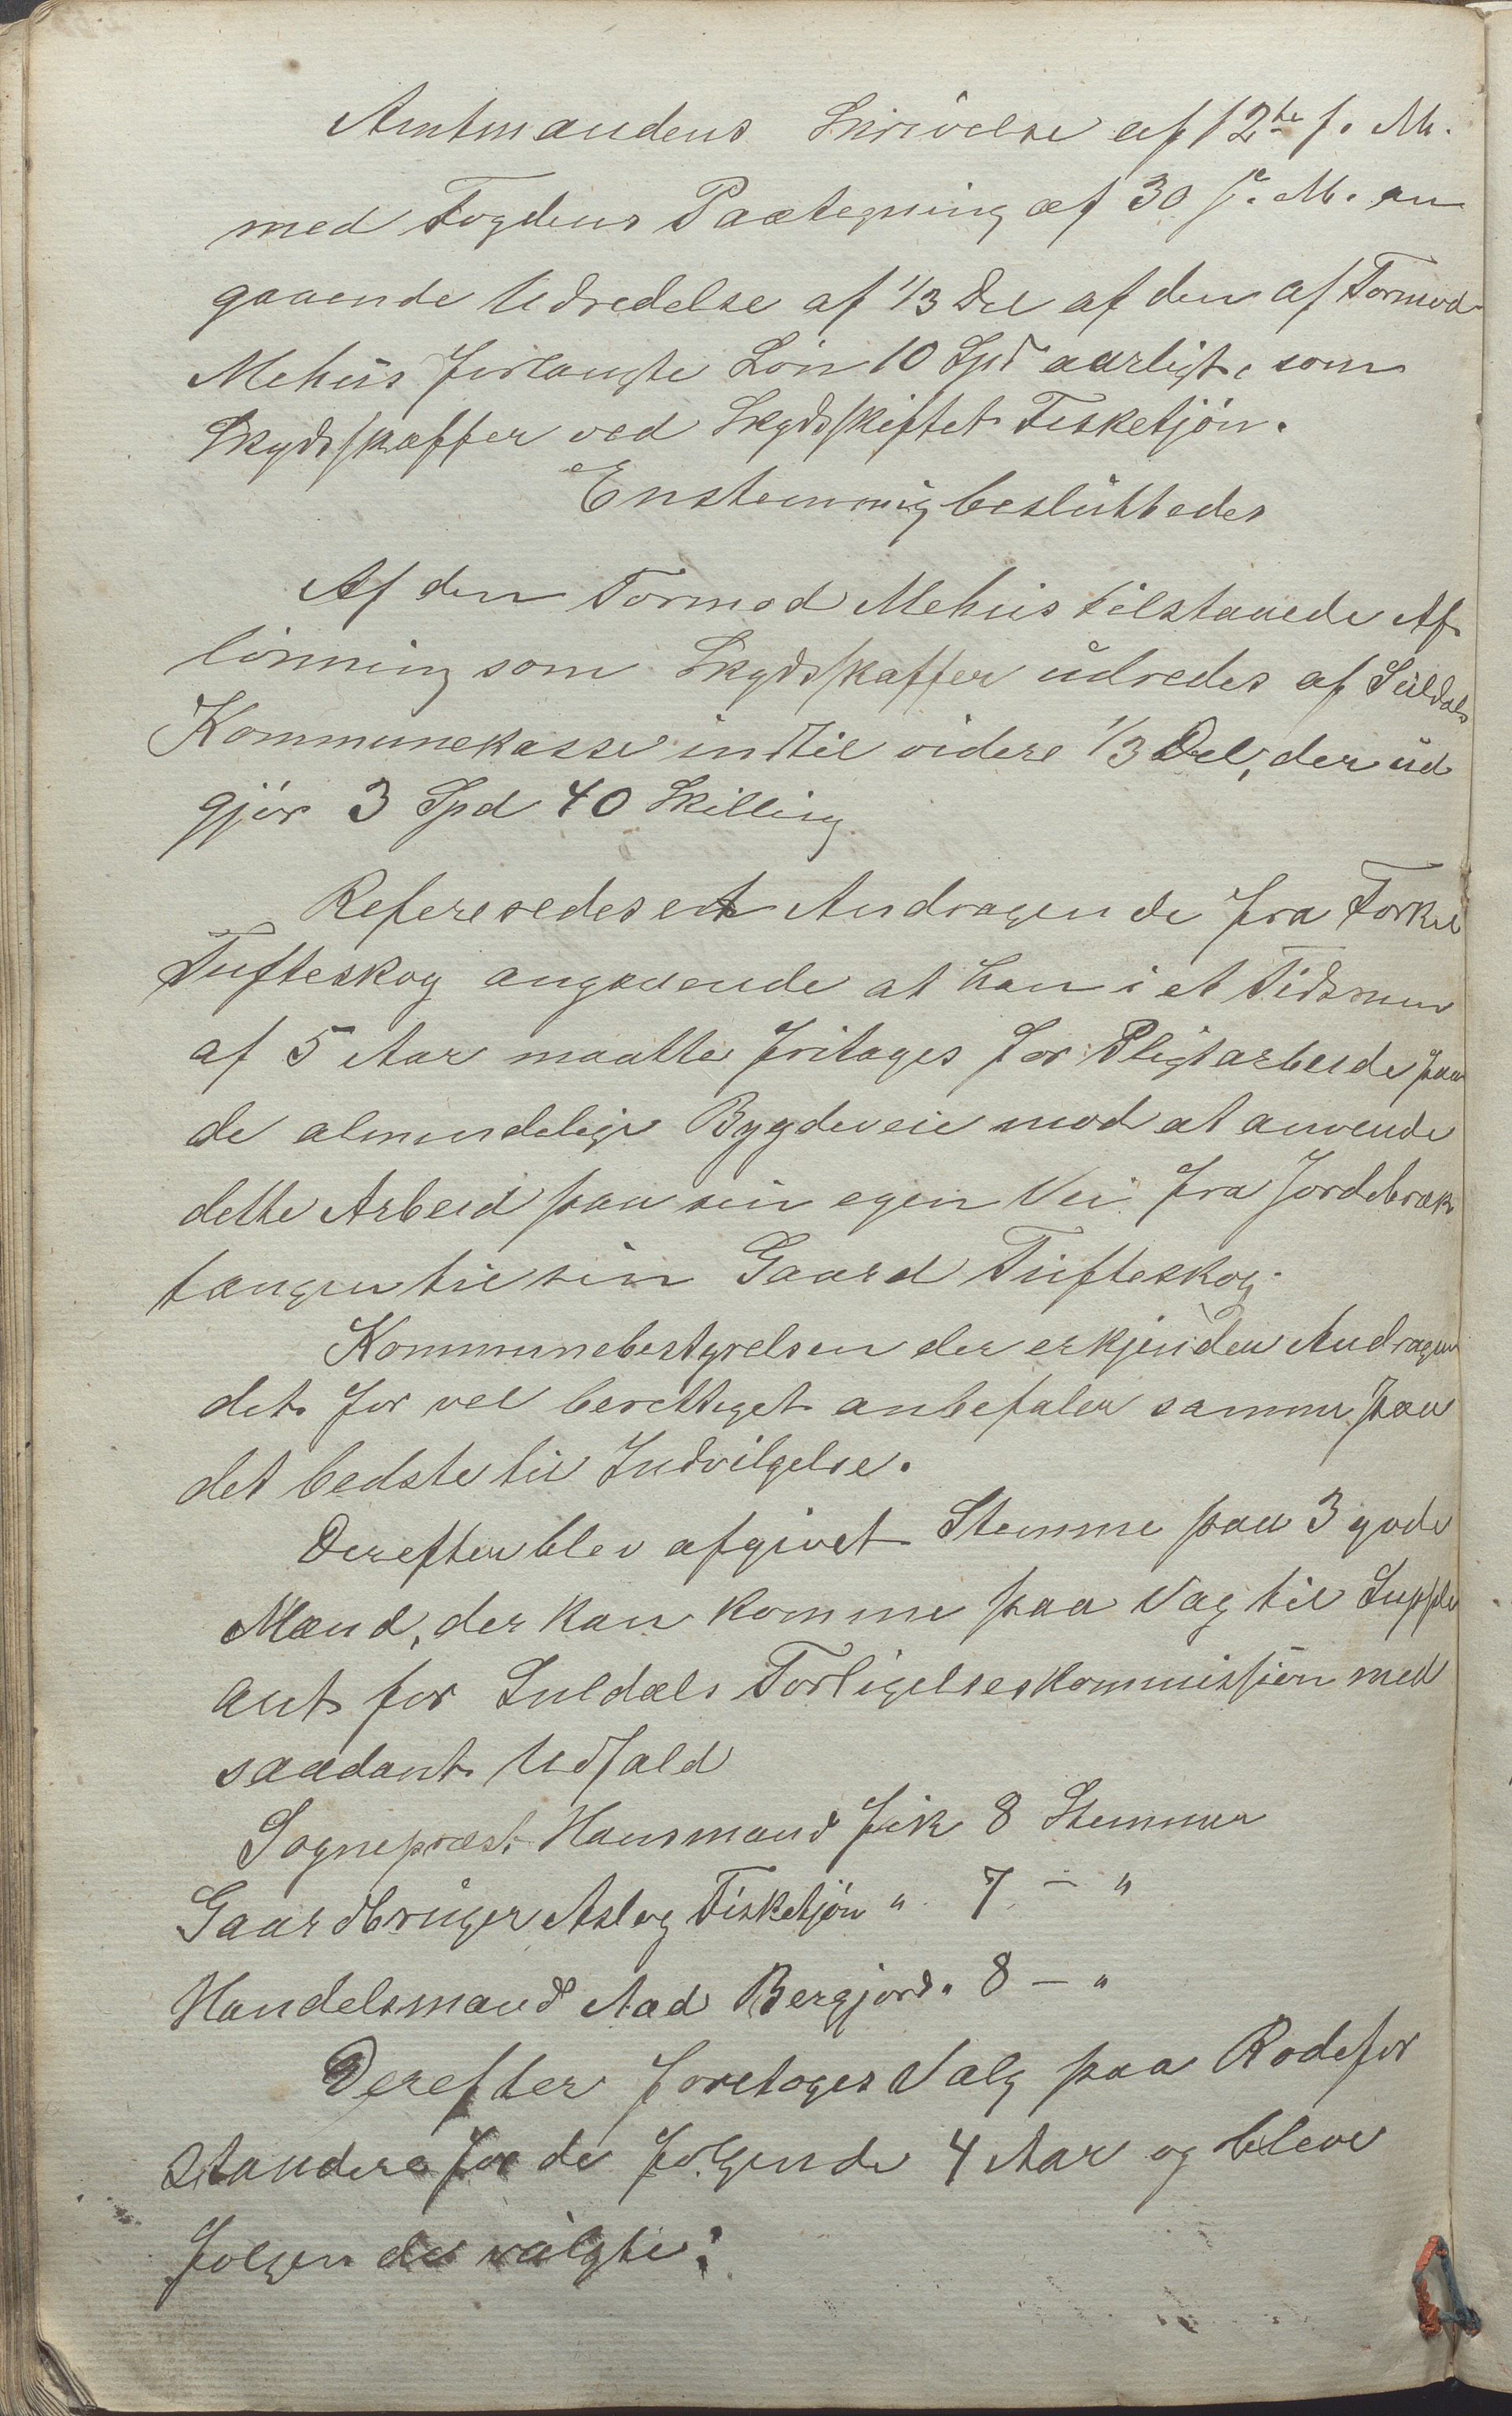 Amtmandens Skrivelse af 12te f. M.
med Fogdens Paategning af 30 f. M. an
gaaende Udredelse af 1/3 Del af den af Tormod
Mehus forlangte Lön 10 Spd aarligt, som
Skydsskaffer ved Skydsskiftet Fisketjön.
Enstemmig besluttedes
Af den Tormod Mehus tilstaaede Af
lönning som Skydsskaffer udredes af Suldals
Kommunekasse indtil videre 1/3 Del, der ud
gjör 3 Spd 40 Skilling
Refereredes et Andragende fra Torkel
Tufteskog angaaende at han i et Tidsrum
af 5 Aar maatte fritages for Pligtarbeide paa
de almindelige Bygdeveie mod at anvende
dette Arbeid paa sin egen Vei fra Jordebræk
tangen til sin Gaard Tufteskog.
Kommunebestyrelsen der erkjender Andragen
det for vel berettiget anbefaler samme paa
det bedste til Indvilgelse.
Derefter blev afgivet Stemme paa 3 gode
Mænd, der kan komme paa Valg til Supple
ant for Suldals Forligelseskommission med
saadant Udfald
Sogneprest Hansmand fik 8 Stemmer
Gaardbruger Aslag Fisketjön " 7 — "
Handelsmand Aad Bergjord " 8 — "
Derefter foretoges Valg paa Rodefor
standere for de fölgende 4 Aar og bleve
folgende valgte: